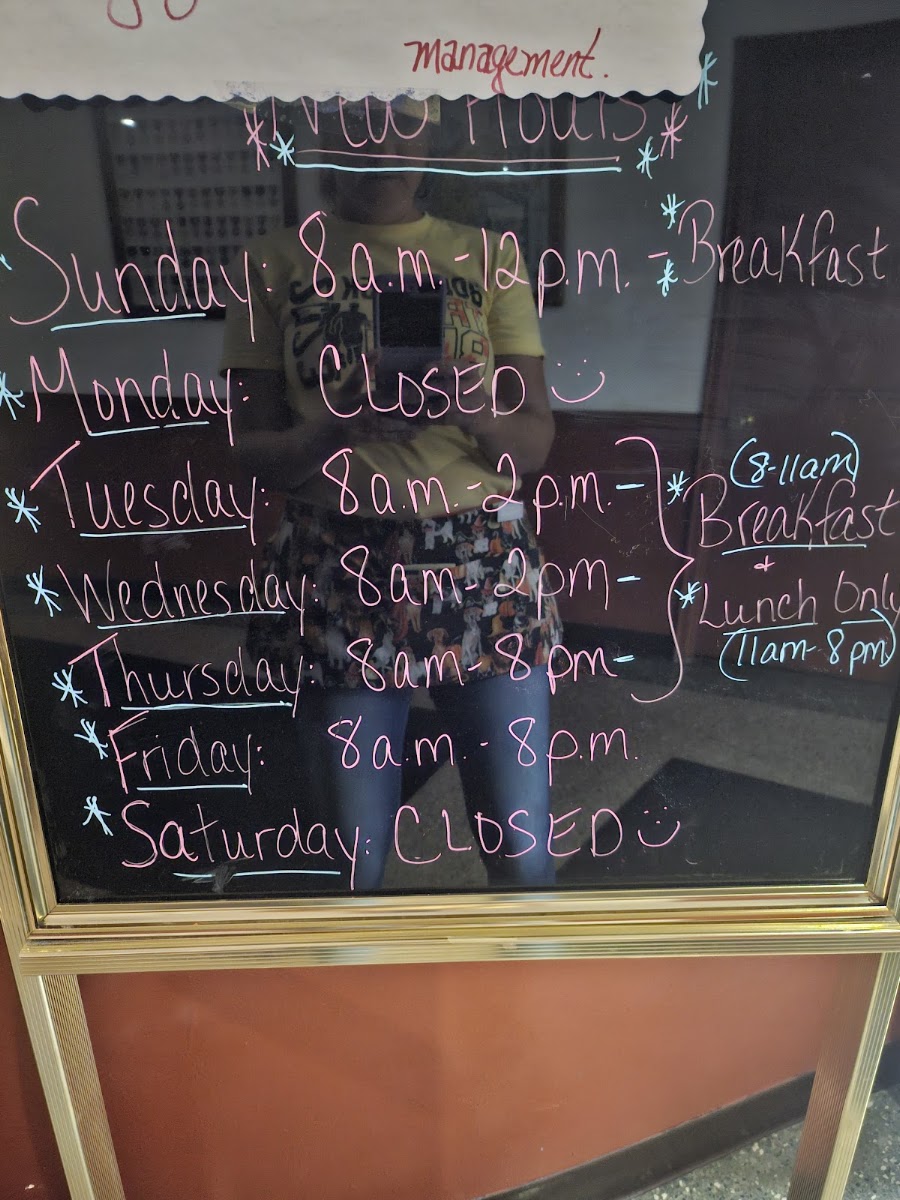 management.
*New Hours*
Sunday: 8a.m.-12p.m. - Breakfast
* Monday: CLOSED :)
* Tuesday: 8a.m.-2p.m. - * (8-11am)
Breakfast
&
* Wednesday: 8am-2pm - * Lunch Only
(11am-8pm)
* Thursday: 8am-8pm-
* Friday: 8a.m.-8p.m.
* Saturday: CLOSED :)